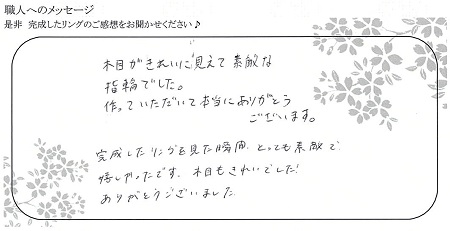 職人へのメッセージ
是非 完成したリングのご感想をお聞かせください♪
木目がきれいに見えて素敵な
指輪でした。
作っていただいて本当にありがとう
ございます。
完成したリングを見た瞬間、とっても素敵で
嬉しかったです。木目もきれいでした!
ありがとうございました